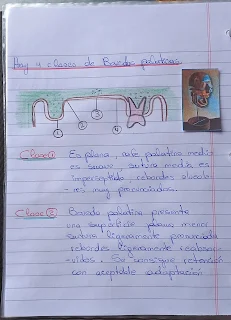 Hay 4 clases de Bóvedas palatinas.
1
2
3
4
Clase 1 Es plana, rafe palatino medi-
es suave, sutura media es
imperceptible rebordes alveola-
res muy pronunciados.
Clase 2 Bóveda palatina presenta
una superficie plana menor
sutura ligeramente pronunciada
rebordes ligeramente reabsor-
vidos. Se consigue retención
con aceptable adaptación